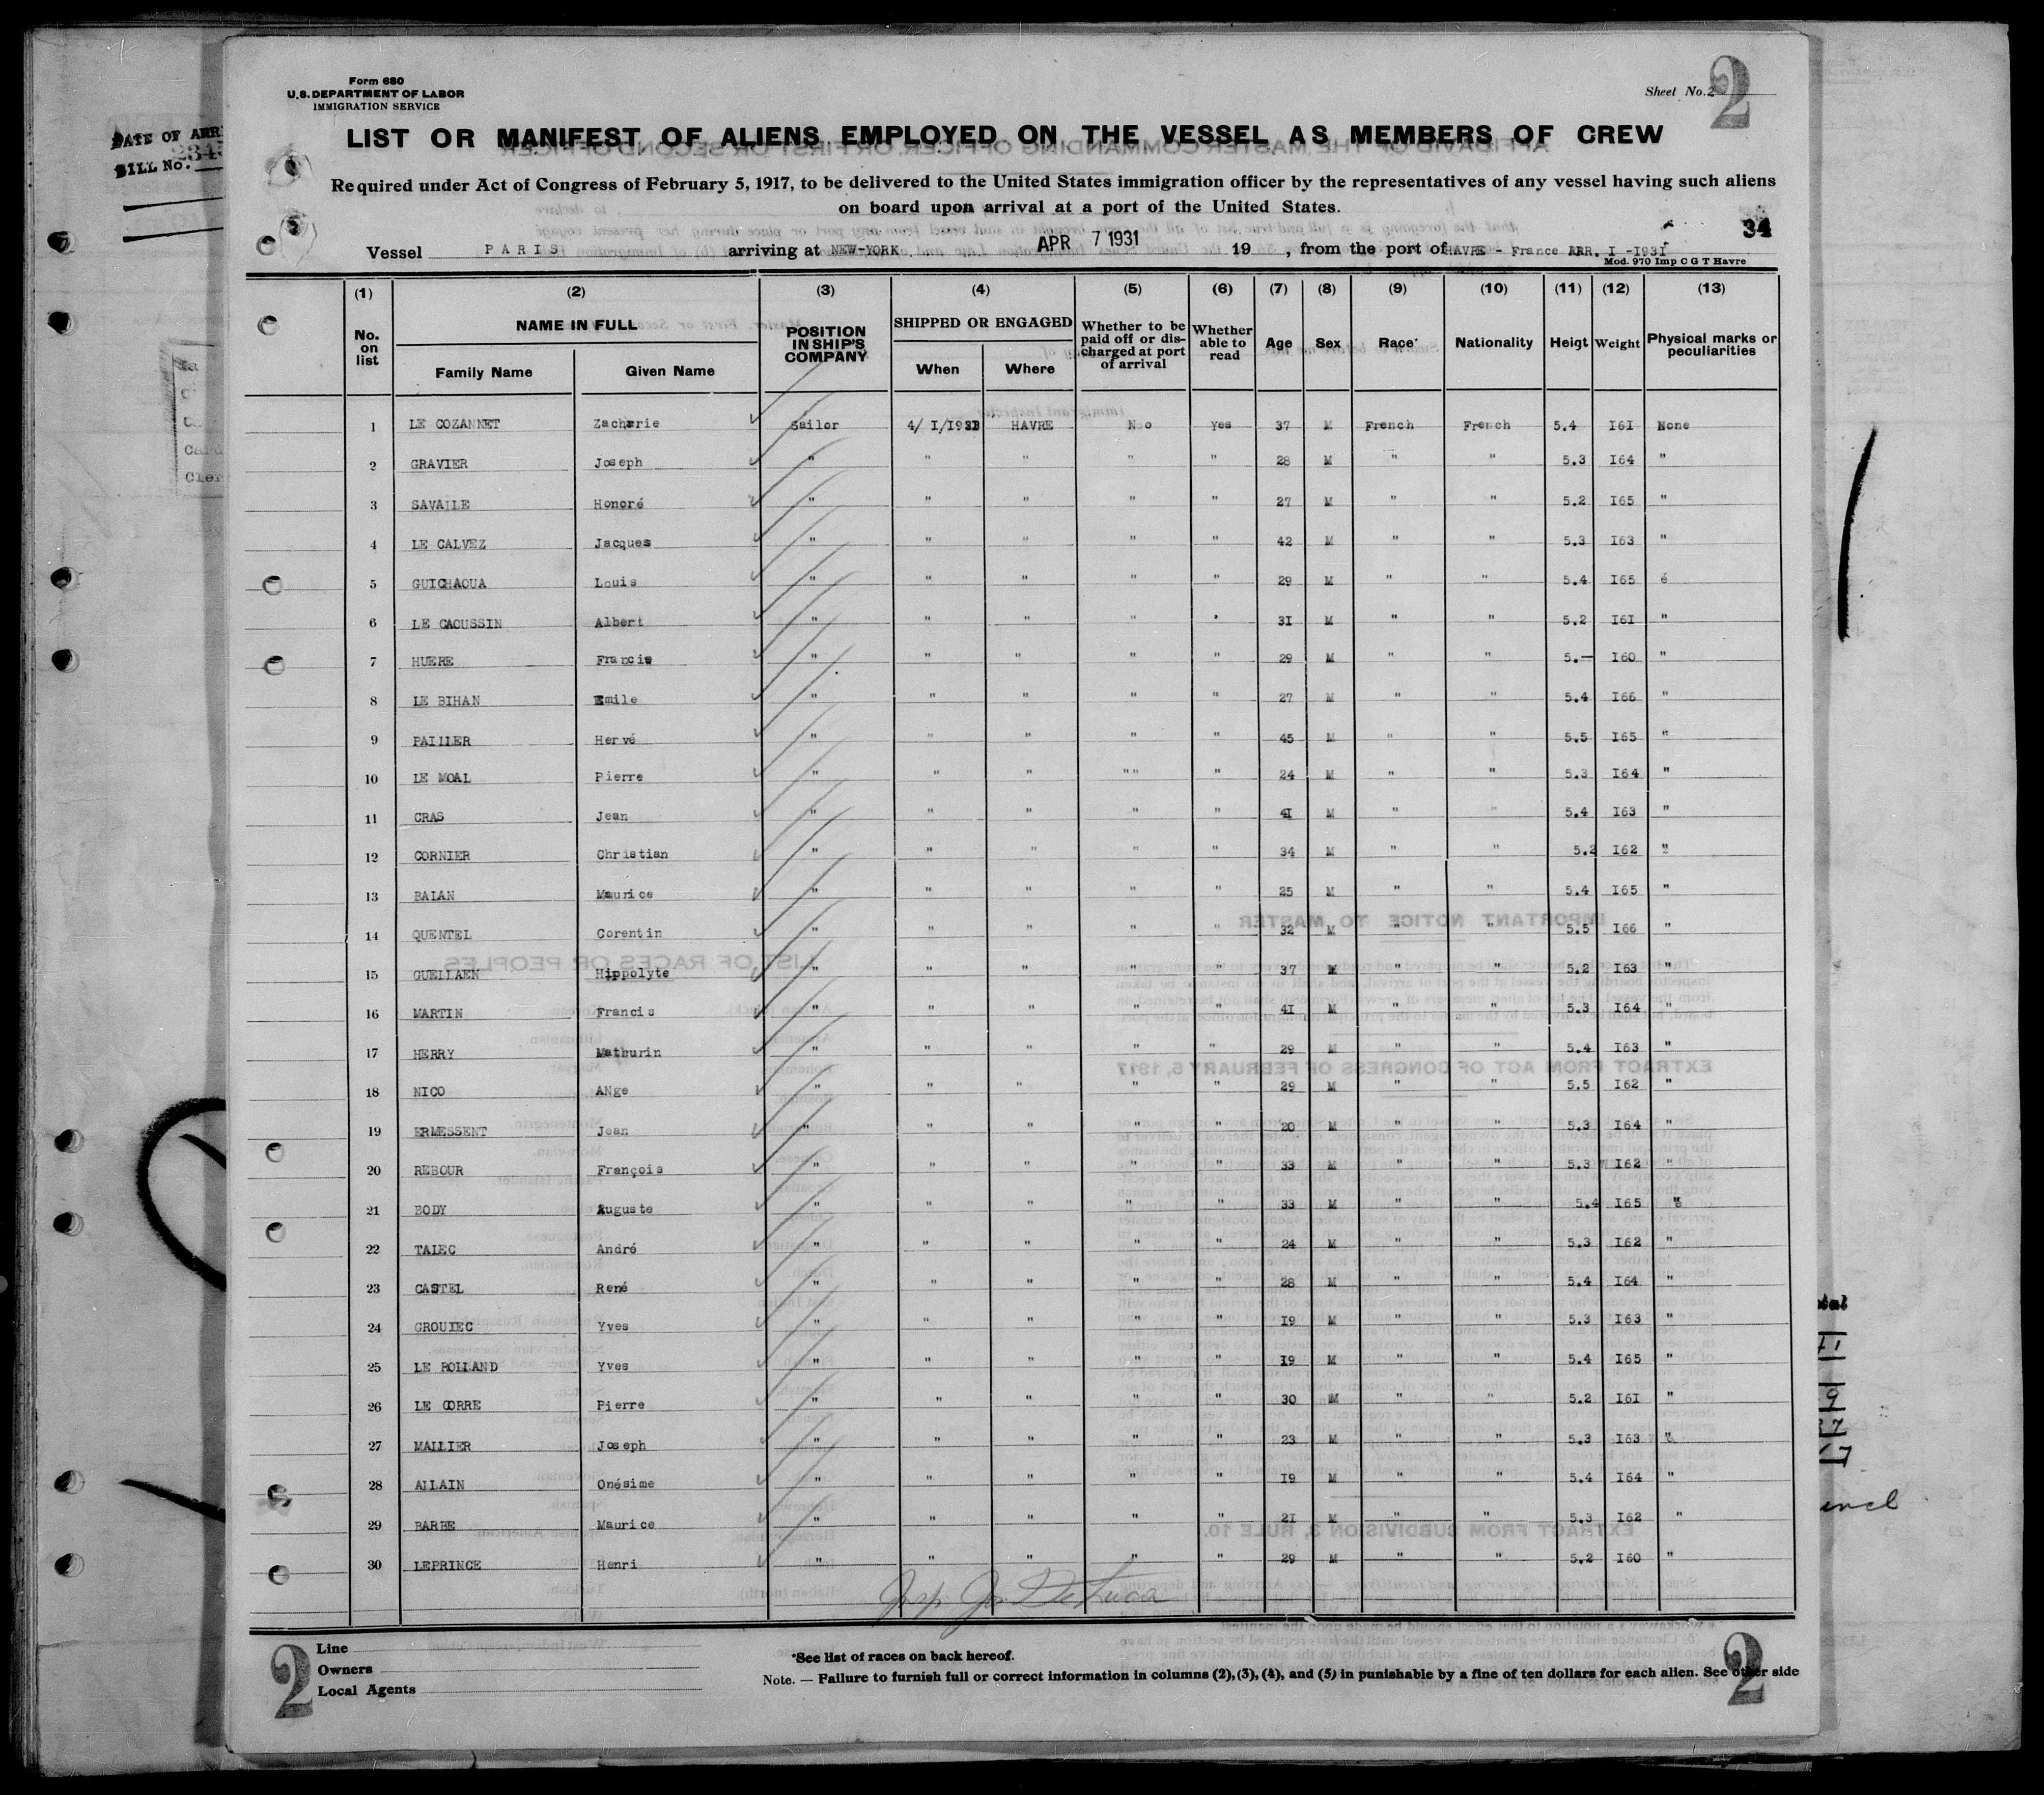 Form 680
U.S. DEPARTMENT OF LABOR
IMMIGRATION SERVICE
Sheet No. 2
2
LIST OR MANIFEST OF ALIENS EMPLOYED ON THE VESSEL AS MEMBERS OF CREW
Required under Act of Congress of February 5, 1917, to be delivered to the United States immigration officer by the representatives of any vessel having such aliens
on board upon arrival at a port of the United States.
34
Vessel PARIS arriving at NEW-YORK. APR 7 1931 19 , from the port of HAVRE - France ARR. I -I93I
Mod. 970 Imp C G T Havre
(1) (2) (3) (4) (5) (6) (7) (8) (9) (10) (11) (12) (13)
No. on list NAME IN FULL Family Name Given Name POSITION IN SHIP'S COMPANY SHIPPED OR ENGAGED When Where Whether to be paid off or discharged at port of arrival Whether able to read Age Sex Race* Nationality Heigt Weight Physical marks or peculiarities
1 LE COZANNET Zacharie Sailor 4/ I/I93I HAVRE No Yes 37 M French French 5.4 I6I None
2 GRAVIER Joseph " " " " " 28 M " " 5.3 I64 "
3 SAVAILE Honoré " " " " " 27 M " " 5.2 I65 "
4 LE CALVEZ Jacques " " " " " 42 M " " 5.3 I63 "
5 GUICHAOUA Louis " " " " " 29 M " " 5.4 I65 é
6 LE CAOUSSIN Albert " " " " " 3I M " " 5.2 I6I "
7 HUERE Francis " " " " " 29 M " " 5.— I60 "
8 LE BIHAN Emile " " " " " 27 M " " 5.4 I66 "
9 PAILLER Hervé " " " " " 45 M " " 5.5 I65 "
10 LE MOAL Pierre " " " "" " 24 M " " 5.3 I64 "
11 CRAS Jean " " " " " 4I M " " 5.4 I63 "
12 CORNIER Christian " " " " " 34 M " " 5.2 I62 "
13 BALAN Maurice " " " " " 25 M " " 5.4 I65 "
14 QUENTEL Corentin " " " " " 32 M " " 5.5 I66 "
15 GUELLAEN Hippolyte " " " " " 37 M " " 5.2 I63 "
16 MARTIN Francis " " " " " 4I M " " 5.3 I64 "
17 HERRY Mathurin " " " " " 29 M " " 5.4 I63 "
18 NICO ANge " " " " " 29 M " " 5.5 I62 "
19 ERMESSENT Jean " " " " " 20 M " " 5.3 I64 "
20 REBOUR François " " " " " 33 M " " 5.3 I62 "
21 BODY Auguste " " " " " 33 M " " 5.4 I65 "
22 TALEC André " " " " " 24 M " " 5.3 I62 "
23 CASTEL René " " " " " 28 M " " 5.4 I64 "
24 GROUIEC Yves " " " " " I9 M " " 5.3 I63 "
25 LE ROLLAND Yves " " " " " I9 M " " 5.4 I65 "
26 LE CORRE Pierre " " " " " 30 M " " 5.2 I6I "
27 MALLIER Joseph " " " " " 23 M " " 5.3 I63 "
28 ALLAIN Onésime " " " " " I9 M " " 5.4 I64 "
29 BARBE Maurice " " " " " 2I M " " 5.3 I62 "
30 LEPRINCE Henri " " " " " 29 M " " 5.2 I60 "
Line
Owners
Local Agents
2
*See list of races on back hereof.
Note. — Failure to furnish full or correct information in columns (2), (3), (4), and (5) in punishable by a fine of ten dollars for each alien. See other side
2
DATE OF ARR
BILL No.